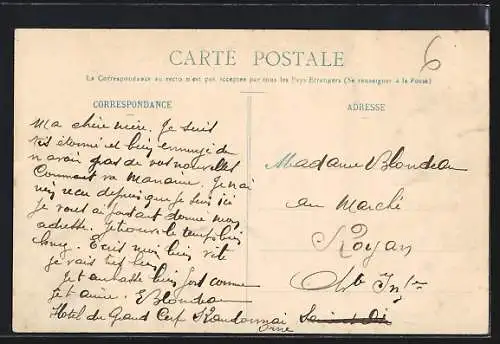 6
CARTE POSTALE
La Correspondance au recto n'est pas acceptée par tous les Pays Etrangers (Se renseigner à la Poste)
CORRESPONDANCE
Ma chère mère. Je suis
très étonné et bien ennuyé de
n avoir pas de vos nouvelles
Comment va Maman. Je n ai
rien reçu depuis que je suis ici
je vous ai pourtant donné mon
adresse. Je trouve le temps bien
long. Ecris moi bien vite
je vais très bien
Je t embrasse bien fort comme
je t aime. E Blondeau
Hotel du Grand Cerf Randonnai
Orne
ADRESSE
Madame Blondeau
au Marché
Royan
Ch te Inf re